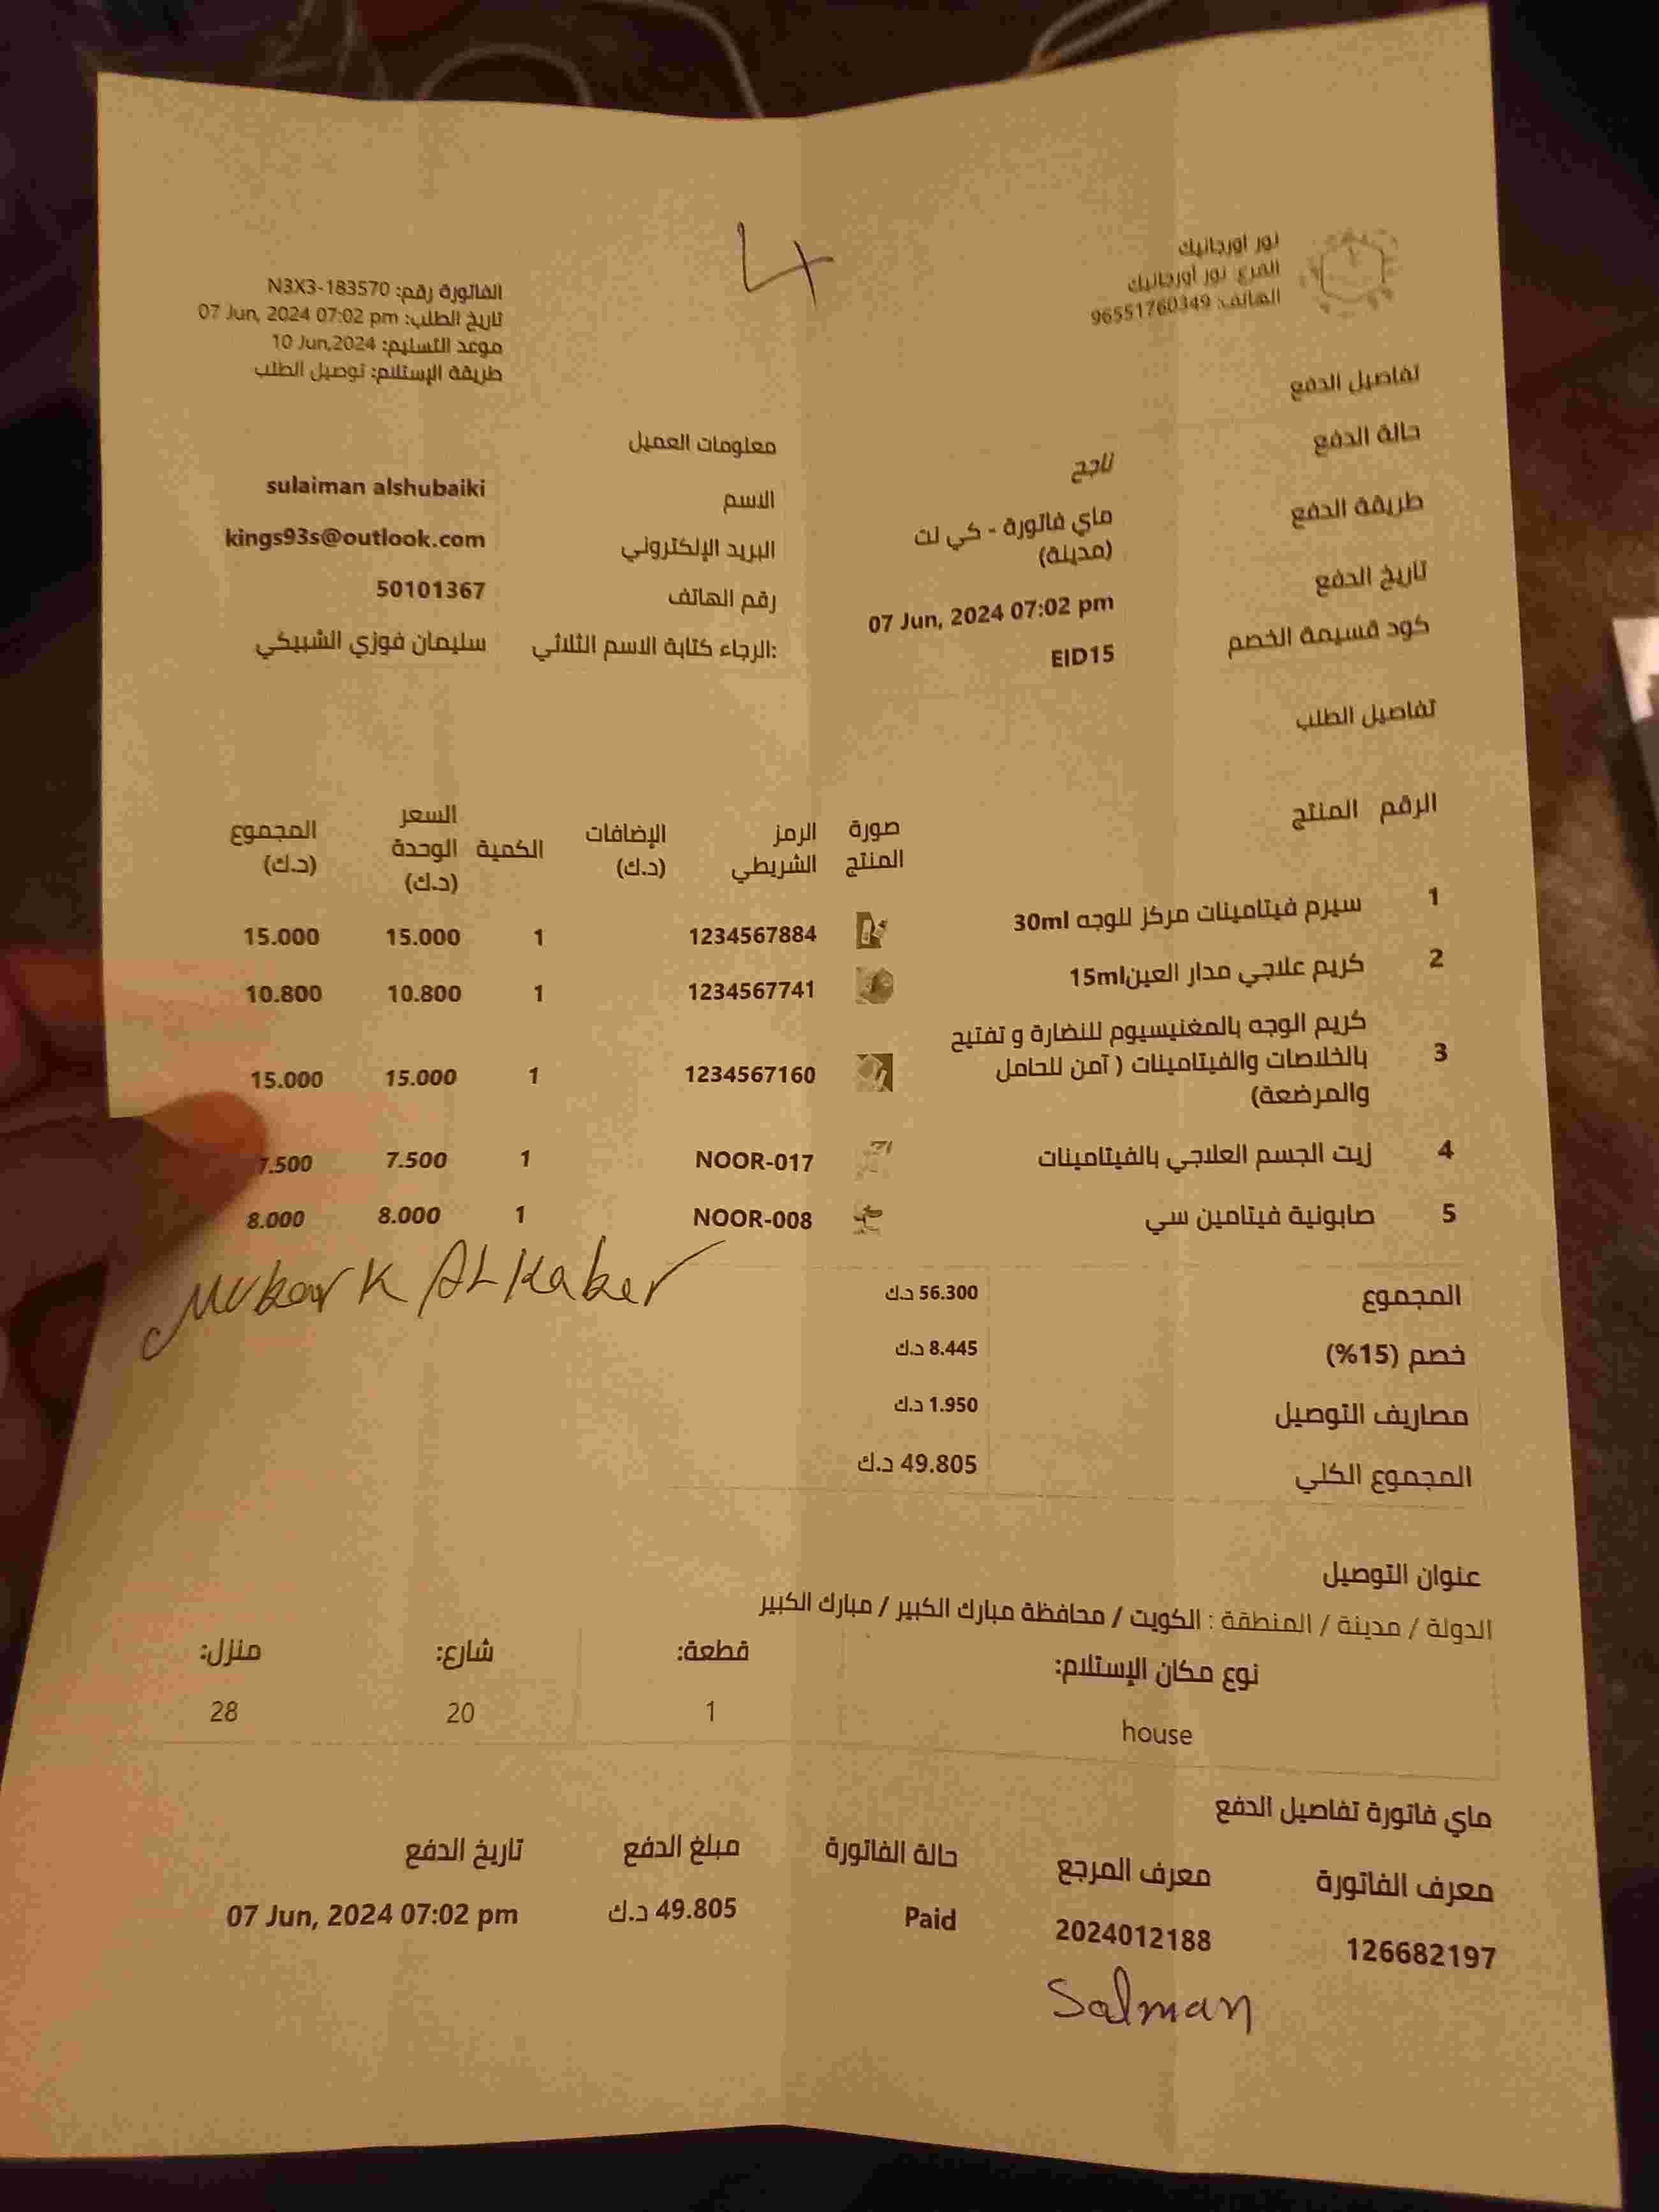 نور اورجانيك
الفرع: نور أورجانيك
الهاتف: 96551760349
4
الفاتورة رقم: N3X3-183570
تاريخ الطلب: 07 Jun, 2024 07:02 pm
موعد التسليم: 10 Jun,2024
طريقة الإستلام: توصيل الطلب
تفاصيل الدفع
حالة الدفع ناجح
طريقة الدفع ماي فاتورة - كي نت
(مدينة)
تاريخ الدفع 07 Jun, 2024 07:02 pm
كود قسيمة الخصم EID15
معلومات العميل
الاسم sulaiman alshubaiki
البريد الإلكتروني kings93s@outlook.com
رقم الهاتف 50101367
الرجاء كتابة الاسم الثلاثي: سليمان فوزي الشبيكي
تفاصيل الطلب
الرقم المنتج صورة المنتج الرمز الشريطي الإضافات (د.ك) الكمية السعر الوحدة (د.ك) المجموع (د.ك)
1 سيرم فيتامينات مركز للوجه 30ml 1234567884 1 15.000 15.000
2 كريم علاجي مدار العين15ml 1234567741 1 10.800 10.800
3 كريم الوجه بالمغنيسيوم للنضارة و تفتيح
بالخلاصات والفيتامينات ( آمن للحامل
والمرضعة) 1234567160 1 15.000 15.000
4 زيت الجسم العلاجي بالفيتامينات NOOR-017 1 7.500 7.500
5 صابونية فيتامين سي NOOR-008 1 8.000 8.000
Mubark ALKaber
المجموع 56.300 د.ك
خصم (15%) 8.445 د.ك
مصاريف التوصيل 1.950 د.ك
المجموع الكلي 49.805 د.ك
عنوان التوصيل
الدولة / مدينة / المنطقة : الكويت / محافظة مبارك الكبير / مبارك الكبير
نوع مكان الإستلام: قطعة: شارع: منزل:
house 1 20 28
ماي فاتورة تفاصيل الدفع
معرف الفاتورة معرف المرجع حالة الفاتورة مبلغ الدفع تاريخ الدفع
126682197 2024012188 Paid 49.805 د.ك 07 Jun, 2024 07:02 pm
Salman